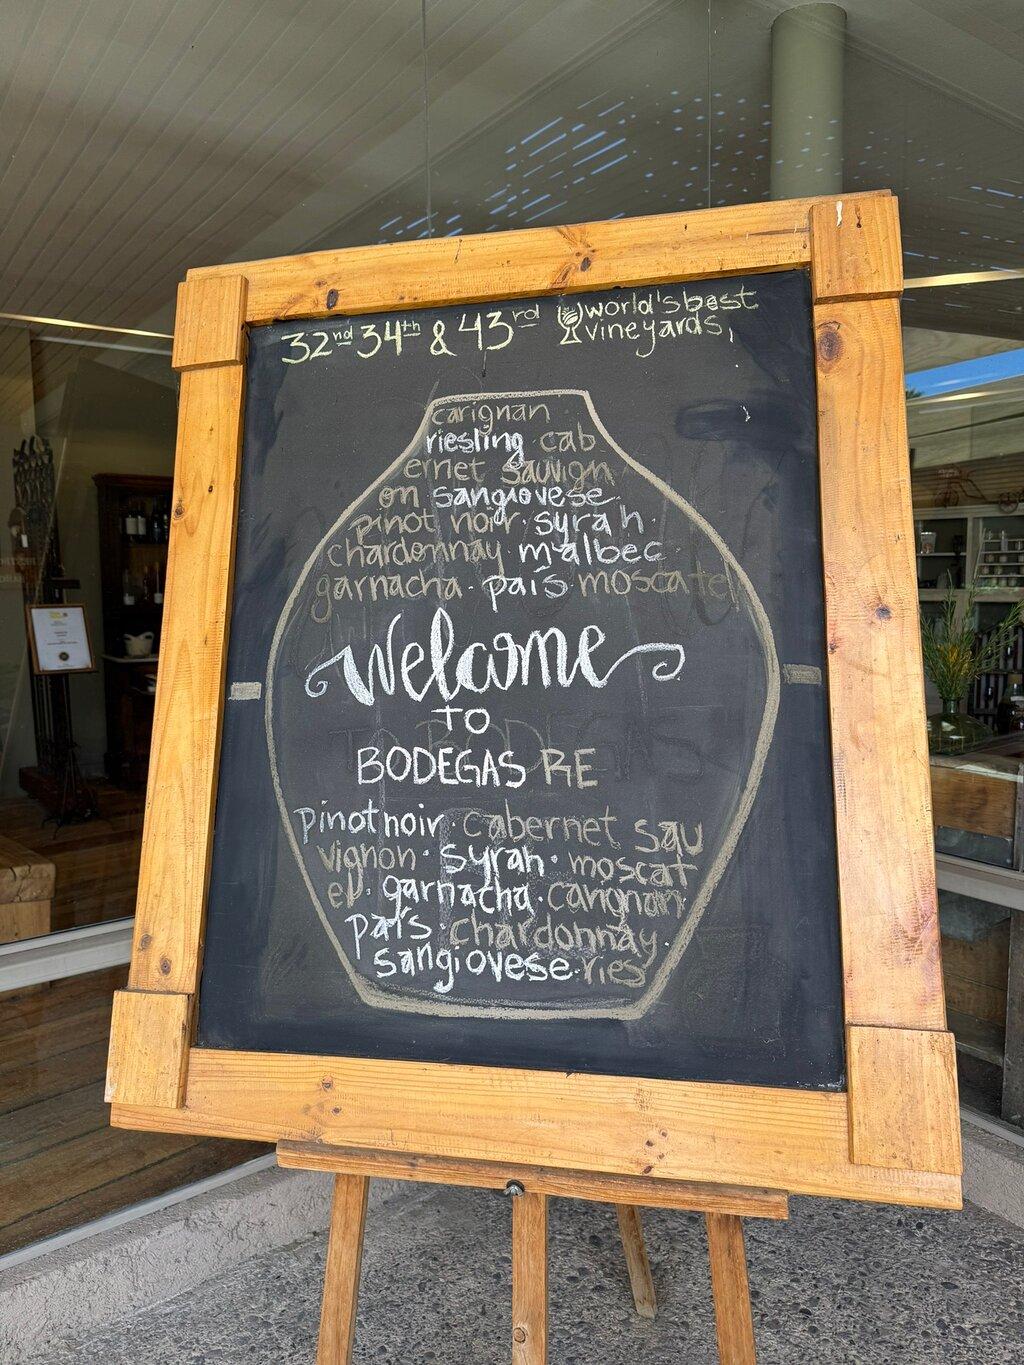 32nd 34th & 43rd world's best
vineyards,
carignan
riesling · cab
ernet sauvign
on sangiovese
pinot noir · syrah ·
chardonnay · malbec ·
garnacha · país · moscatel
Welcome
TO
BODEGAS RE
pinot noir · cabernet sau
vignon · syrah · moscat
el · garnacha · carignan
país · chardonnay ·
sangiovese · ries